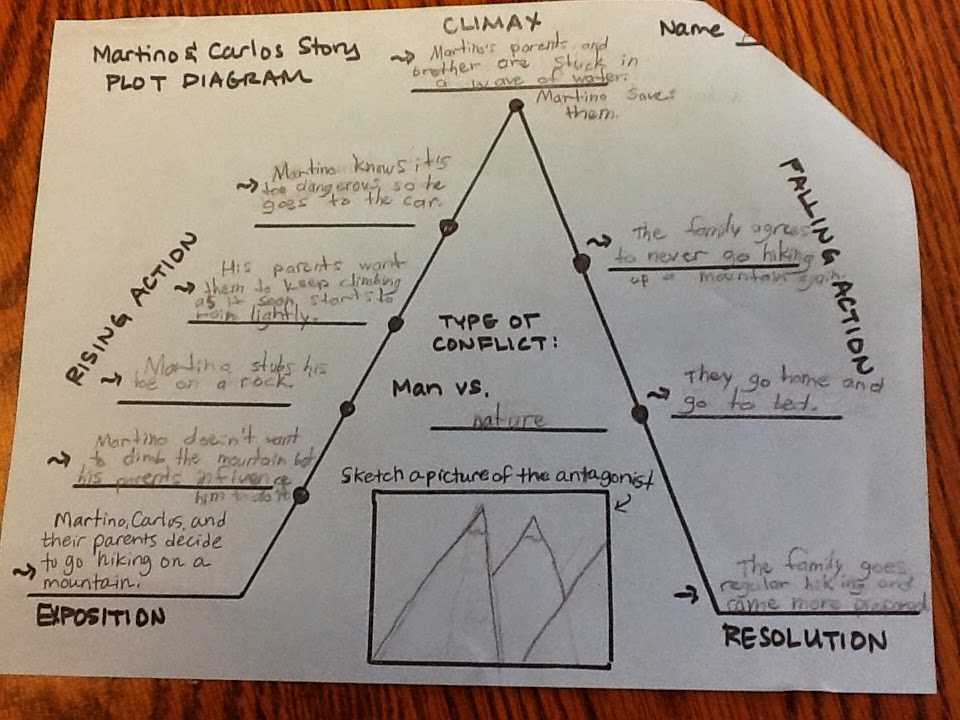 Martino & Carlos Story
PLOT DIAGRAM
CLIMAX
Martino's parents and
brother are stuck in
a wave of water.
Martino saves
them.
Name
Martino knows it's
too dangerous so he
goes to the car.
RISING ACTION
His parents want
them to keep climbing
as it soon starts to
rain lightly.
Martino stubs his
toe on a rock
Martino doesn't want
to climb the mountain but
his parents influence
him to do it
Martino, Carlos, and
their parents decide
to go hiking on a
mountain.
EXPOSITION
TYPE OF
CONFLICT:
Man vs.
nature
Sketch a picture of the antagonist
FALLING ACTION
The family agrees
to never go hiking
up a mountain again.
They go home and
go to bed.
The family goes
regular hiking and
came more prepared
RESOLUTION